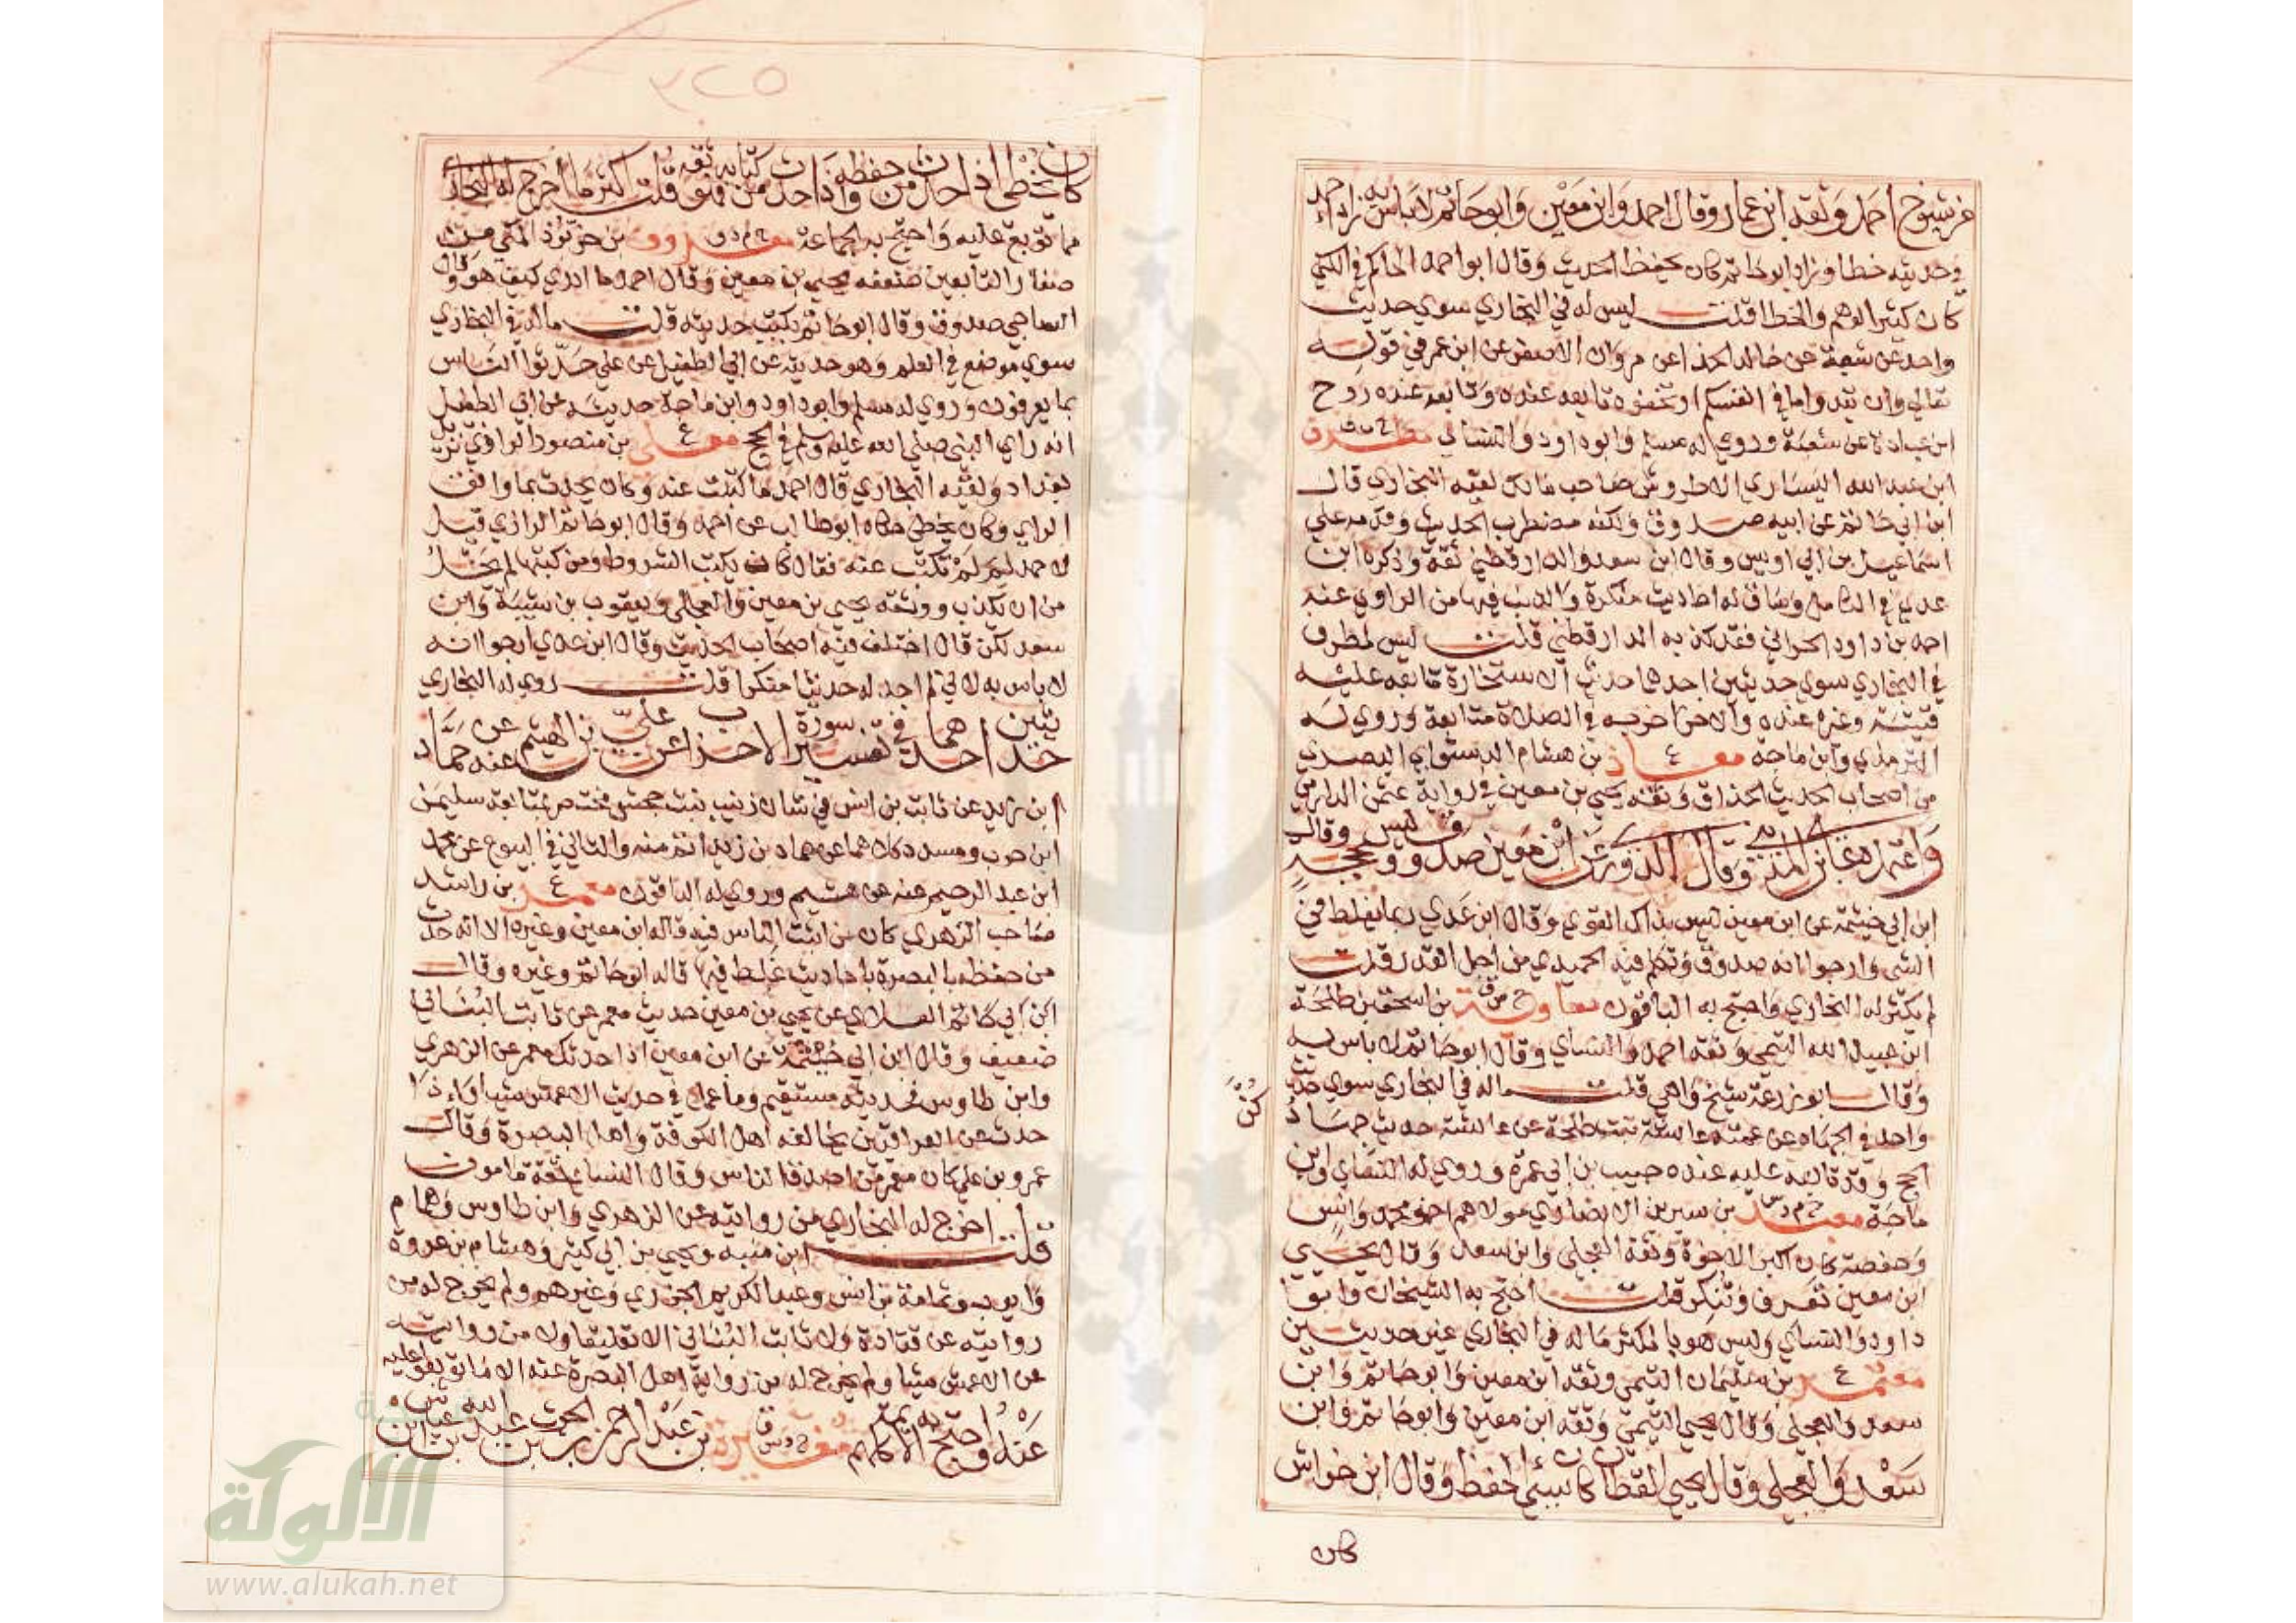 من شيوخ احمد وثقه ابن عمار وقال احمد وابن معين وابوحاتم لا باس به زاد احمد
في حديثه خطا وزاد ابوحاتم كان يحفظ الحديث وقال ابو احمد الحاكم في الكني
كان كثير الوهم والخطا قلت ليس له في البخاري سوي حديث
واحد عن شعبة عن خالد الحذا عن مروان الاصفر عن ابن عمر في قوله
تعالي وان تبدوا ما في انفسكم او تخفوه تابعه عنده وتابعه عنده روح
ابن عبادة عن شعبة وروي له مسلم وابو داود والنسائي مطرف
ابن عبد الله اليساري الاطروش صاحب مالك لقيه البخاري قال
ابن ابي حاتم عن ابيه صدوق ولكنه مضطرب الحديث وقدمه علي
اسماعيل بن ابي اويس وقال ابن سعد والدارقطني ثقة وذكره ابن
عدي في الكامل وساق له احاديث منكرة والذنب فيها من الراوي عنه
احمد بن داود الحراني فقد كذبه الدارقطني قلت ليس لمطرف
في البخاري سوي حديثين احدهما حديث الاستخارة تابعه عليه
قتيبة وغيره عنده والاخر اخرجه في الصلاة متابعة وروي له
الترمذي وابن ماجة معاذ ع بن هشام الدستوائي البصري
من اصحاب الحديث الحذاق وثقه يحيي بن معين في رواية عثمن الدارمي
واعتمده علي بن المديني وقال الدوري عن ابن معين صدوق وليس بحجة وقال
ابن ابي خيثمة عن ابن معين ليس بذاك القوي وقال ابن عدي ربما يغلط في
الشي وارجو انه صدوق وتكلم فيه الحميدي من اجل القدر قلت
لم يكثر له البخاري واحتج به الباقون معاوية خ س ق بن اسحق بن طلحة
ابن عبيد الله التيمي وثقه احمد والنساي وقال ابوحاتم لا باس به
وقال ابو زرعة شيخ واهي قلت ماله في البخاري سوي حديث
واحد في الجهاد عن عمته عائشة بنت طلحة عن عائشة حديث جهاد كن
الحج وقد تابعه عليه عنده حبيب بن ابي عمرة وروي له النساي وابن
ماجة معبد خ م د س بن سيرين الانصاري مولاهم اخو محمد وانس
وحفصة كان اكبر الاخوة وثقه العجلي وابن سعد وقال يحيي
ابن معين تعرف وتنكر قلت احتج به الشيخان وابو
داود والنساي وليس هو بالمكثر ماله في البخاري غير حديثين
معتمر ع بن سليمان التيمي وثقه ابن معين وابو حاتم وابن
سعد والعجلي وقال يحيي التيمي وثقه ابن معين وابو حاتم وابن
سعد والعجلي وقال يحيي القطان كان سيئ الحفظ وقال ابن خراش
كان
٣٢٥
كان يخطئ اذا حدث من حفظه واذا حدث من كتابه فهو ثقة قلت اكثر ما اخرج له البخاري
مما توبع عليه واحتج به الجماعة معروف خ م د ق بن خربوذ المكي من
صغار التابعين ضعفه يحيي بن معين وقال احمد ما ادري كيف هو وقال
الساجي صدوق وقال ابو حاتم يكتب حديثه قلت ماله في البخاري
سوي موضع في العلم وهو حديثه عن ابي الطفيل عن علي حدثوا الناس
بما يعرفون وروي له مسلم وابو داود وابن ماجة حديثه عن ابي الطفيل
انه راي النبي صلي الله عليه وسلم في الحج معلي ع بن منصور الرازي نزيل
بغداد ولقيه البخاري قال احمد ما كتبت عنه وكان يحدث بما وافق
الراي وكان يخطي حكاه ابو طالب عن احمد وقال ابو حاتم الرازي قيل
لاحمد لم لم تكتب عنه فقال كان يكتب الشروط ومن كتبها لم يخل
من ان يكذب ووثقه يحيي بن معين والعجلي ويعقوب بن شيبة وابن
سعد لكن قال اختلف فيه اصحاب الحديث وقال ابن عدي ارجوا انه
لا باس به لاني لم اجد له حديثا منكرا قلت روي له البخاري
حديثين احدهما في تفسير سورة الاحزاب عن علي بن الهيثم عنه عن حماد
ابن زيد عن ثابت بن انس في شان زينب بنت جحش مختصر تابعه سليمن
ابن حرب ومسدد كلاهما عن حماد بن زيد اتم منه والثاني في البيوع عن محمد
ابن عبد الرحيم عنه عن هشيم وروي له الباقون معمر ع بن راشد
صاحب الزهري كان من اثبت الناس فيه قاله ابن معين وغيره الا انه حدث
من حفظه بالبصرة باحاديث غلط فيها قاله ابو حاتم وغيره وقال
ابن ابي حاتم العلاي عن يحيي بن معين حديث معمر عن ثابت البناني
ضعيف وقال ابن ابي خيثمة عن ابن معين اذا حدثك معمر عن الزهري
وابن طاوس فحديثه مستقيم وما عمل في حديث الاعمش شيا واذا
حدث عن العراقيين خالفه اهل الكوفة واهل البصرة وقال
عمرو بن علي كان معمر من اصدق الناس وقال النسائ ثقة مامون
قلت اخرج له البخاري من روايته عن الزهري وابن طاوس وهمام
ابن منبه ويحيي بن ابي كثير وهشام بن عروة
وايوب وثمامة بن انس وعبد الكريم الجزري وغيرهم ولم يخرج له من
روايته عن قتادة ولا ثابت البناني الا تعليقا ولا من روايته
عن الاعمش شيا ولم يخرج له من رواية اهل البصرة عنه الا ما توبعوا عليه
عنه واحتج به الائمة كلهم مغيرة خ د س ق بن عبد الرحمن بن الحرث بن عبد الله بن عياش ابن
الالوكة
www.alukah.net